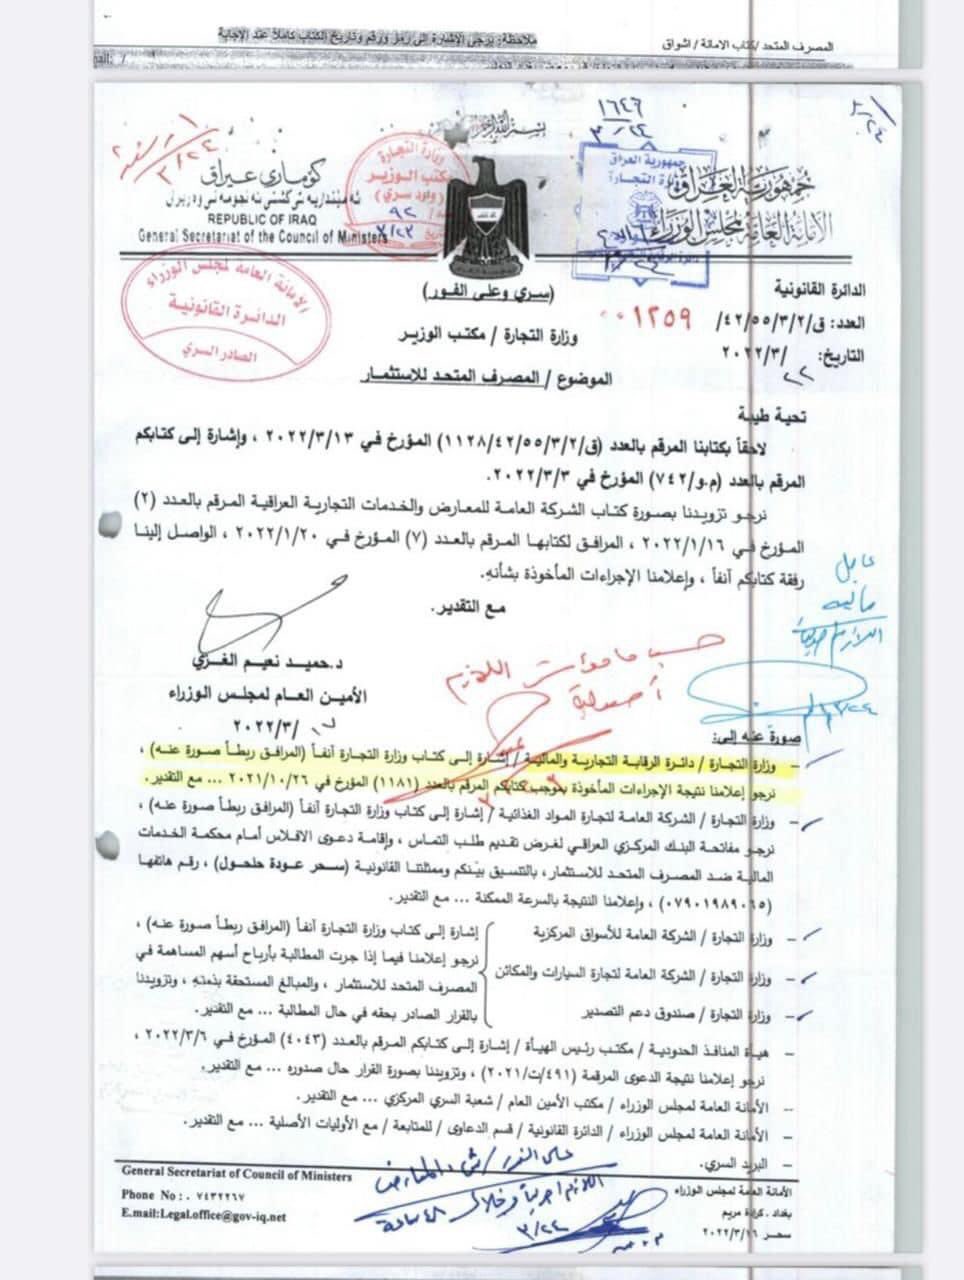 المصرف المتحد /كتاب الامانة / اشواق
ملاحظة: يرجى الإشارة الى رمز ورقم وتاريخ الكتاب كاملاً عند الإجابة
١٦٤٦
٣/٢٤
بسم الله الرحمن الرحيم
جمهورية العراق
الأمانة العامة لمجلس الوزراء
جمهورية العراق
وزارة التجارة
وزارة التجارة
مكتب الوزير
(وارد سري)
٩٢
كوماري عيراق
REPUBLIC OF IRAQ
General Secretariat of the Council of Ministers
الأمانة العامة لمجلس الوزراء
الدائرة القانونية
الصادر السري
(سري وعلى الفور)
الدائرة القانونية
العدد: ق/٤٢/٥٥/٣/٢/ ٠٠١٢٥٩
التاريخ: ٢٢ /٢٠٢٢/٣
وزارة التجارة / مكتب الوزير
الموضوع / المصرف المتحد للاستثمار
تحية طيبة
لاحقاً بكتابنا المرقم بالعدد (ق/١١٢٨/٤٢/٥٥/٣/٢) المؤرخ في ٢٠٢٢/٣/١٣ ، وإشارة إلى كتابكم
المرقم بالعدد (م.و/٧٤٢) المؤرخ في ٢٠٢٢/٣/٣.
نرجو تزويدنا بصورة كتاب الشركة العامة للمعارض والخدمات التجارية العراقية المرقم بالعدد (٢)
المؤرخ في ٢٠٢٢/١/١٦ ، المرافق لكتابها المرقم بالعدد (٧) المؤرخ في ٢٠٢٢/١/٢٠ ، الواصل إلينا
رفقة كتابكم آنفاً ، وإعلامنا الإجراءات المأخوذة بشأنه.
مع التقدير.
د.حميد نعيم الغزي
الأمين العام لمجلس الوزراء
/٢٠٢٢/٣
اللازم
صورة عنه إلى:
– وزارة التجارة / دائرة الرقابة التجارية والمالية / إشارة إلى كتاب وزارة التجارة آنفاً (المرافق ربطاً صورة عنه) ،
نرجو إعلامنا نتيجة الإجراءات المأخوذة بموجب كتابكم المرقم بالعدد (١١٨١) المؤرخ في ٢٠٢١/١٠/٢٦ ... مع التقدير.
– وزارة التجارة / الشركة العامة لتجارة المواد الغذائية / إشارة إلى كتاب وزارة التجارة آنفاً (المرافق ربطاً صورة عنه) ،
نرجو مفاتحة البنك المركزي العراقي لغرض تقديم طلب التماس ، وإقامة دعوى الافلاس أمام محكمة الخدمات
المالية ضد المصرف المتحد للاستثمار، بالتنسيق بينكم وممثلتنا القانونية (سحر عودة حلحول) ، رقم هاتفها
(٠٧٩٠١٩٨٩٠٦٥) ، وإعلامنا النتيجة بالسرعة الممكنة ... مع التقدير.
– وزارة التجارة / الشركة العامة للأسواق المركزية
– وزارة التجارة / الشركة العامة لتجارة السيارات والمكائن
– وزارة التجارة / صندوق دعم التصدير
إشارة إلى كتاب وزارة التجارة آنفاً (المرافق ربطاً صورة عنه) ،
نرجو إعلامنا فيما إذا جرت المطالبة بأرباح أسهم المساهمة في
المصرف المتحد للاستثمار ، والمبالغ المستحقة بذمته ، وتزويدنا
بالقرار الصادر بحقه في حال المطالبة ... مع التقدير.
– هيأة المنافذ الحدودية / مكتب رئيس الهيأة / إشارة إلى كتابكم المرقم بالعدد (٤٠٤٣) المؤرخ في ٢٠٢٢/٣/٦ ،
نرجو إعلامنا نتيجة الدعوى المرقمة (٤٩١/ت/٢٠٢١) ، وتزويدنا بصورة القرار حال صدوره ... مع التقدير.
– الأمانة العامة لمجلس الوزراء / مكتب الأمين العام / شعبة السري المركزي ... مع التقدير.
– الأمانة العامة لمجلس الوزراء / الدائرة القانونية / قسم الدعاوى / للمتابعة / مع الأوليات الأصلية ... مع التقدير.
– البريد السري.
٣/٢٤
الأمانة العامة لمجلس الوزراء
بغداد . كرادة مريم
سحر ٢٠٢٢/٣/١٦
General Secretariat of Council of Ministers
Phone No : ٧٤٣٢٢٦٧
E.mail:Legal.office@gov-iq.net